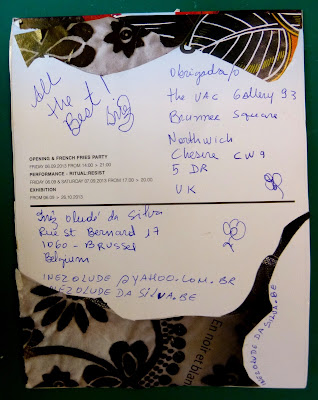 All
the !
Best
Obrigada/o
the VAC Gallery 93
Brunner Square
Northwich
Chesure CW9
5 DR
UK
OPENING & FRENCH FRIES PARTY
FRIDAY 06.09.2013 FROM 14:00 > 21:00
PERFORMANCE - RITUAL:RESIST
FRIDAY 06.09 & SATURDAY 07.09.2013 FROM 17:00 > 20:00
EXHIBITION
FROM 06.09 > 26.10.2013
Inês Oludé da Silva
Rue St Bernard 17
1060 - BRUSSEL
Belgium
INEZOLUDE @YAHOO.COM.BR
INEZOLUDE DA SILVA.BE
En noir et blanc
INEZOLUDE DA SILVA.BE